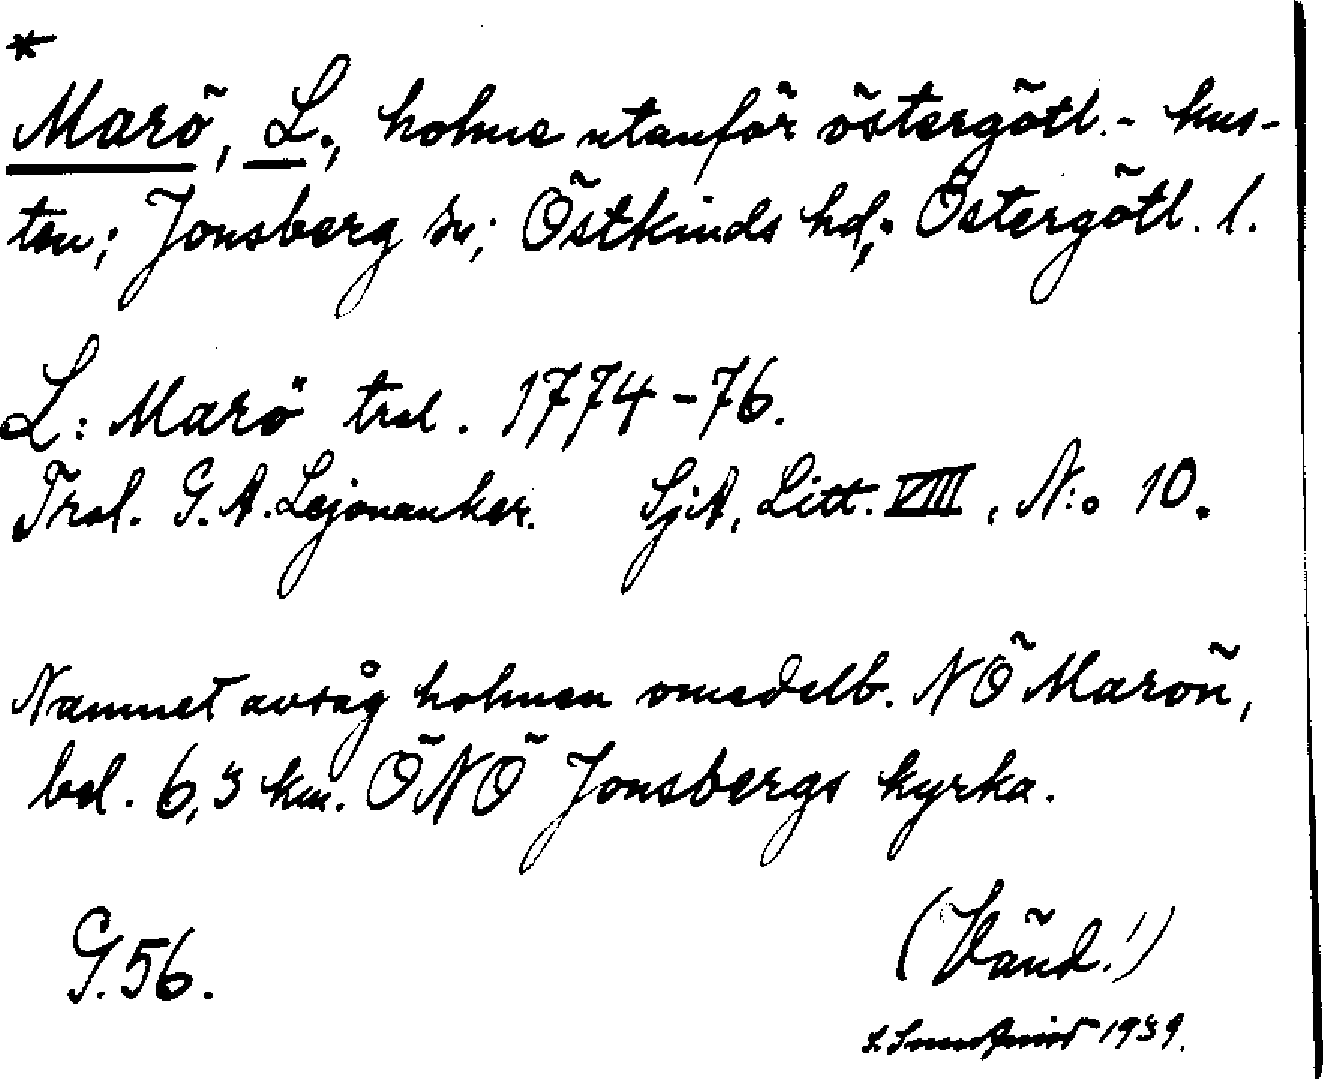 *
Marö, L., holme utanför östergötl.- kus-
ten; Jonsberg sn; Östkinds hd; Östergötl. l.
L: Marö trol. 1774-76.
Trol. G. A. Lejonanker. SjA, Litt. VIII, N:o 10.
Namnet avsåg holmen omedelb. NÖ Marön,
bel. 6,3 km. ÖNÖ Jonsbergs kyrka.
G. 56.
(Vänd!)
1939.